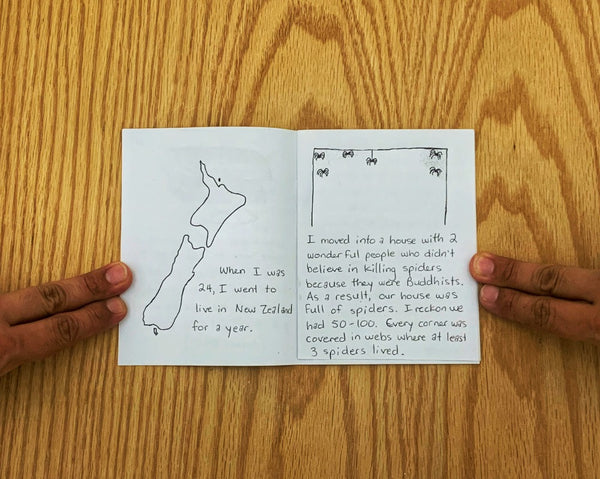 When I was
24, I went to
live in New Zealand
for a year.
I moved into a house with 2
wonderful people who didn't
believe in killing spiders
because they were Buddhists.
As a result, our house was
full of spiders. I reckon we
had 50-100. Every corner was
covered in webs where at least
3 spiders lived.